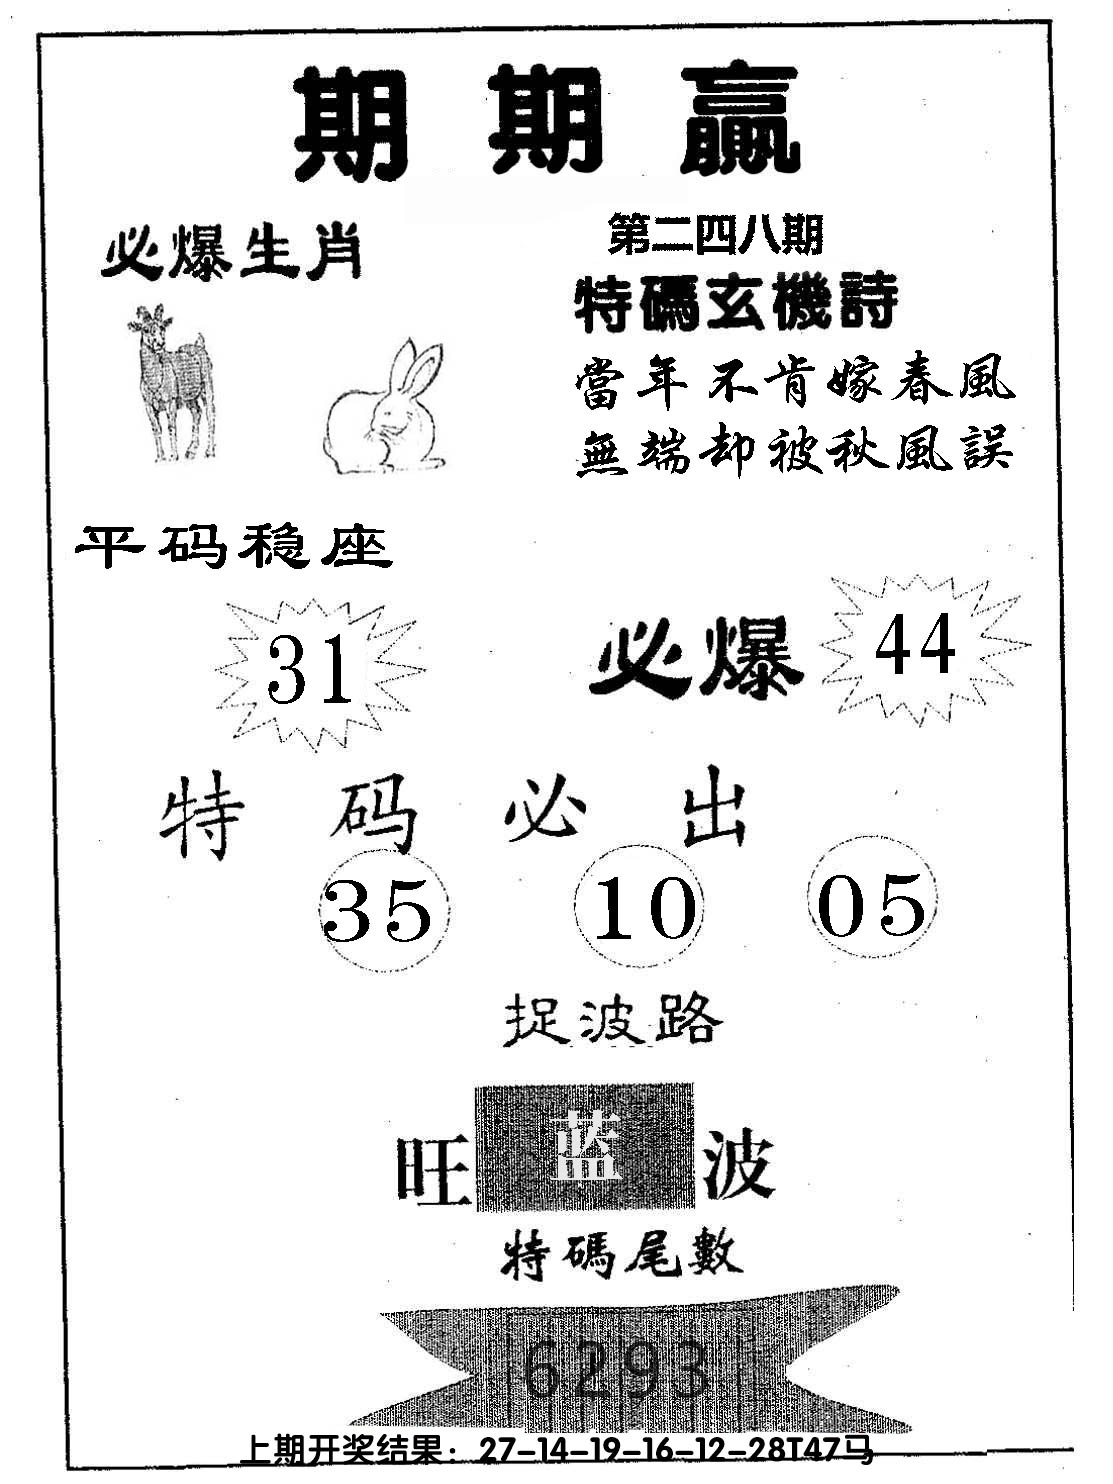 期期赢
必爆生肖
第二四八期
特碼玄機詩
當年不肯嫁春風
無端却被秋風誤
平码稳座
31
必爆
44
特码必出
35 10 05
捉波路
旺蓝波
特碼尾數
6293
上期开奖结果：27-14-19-16-12-28T47马